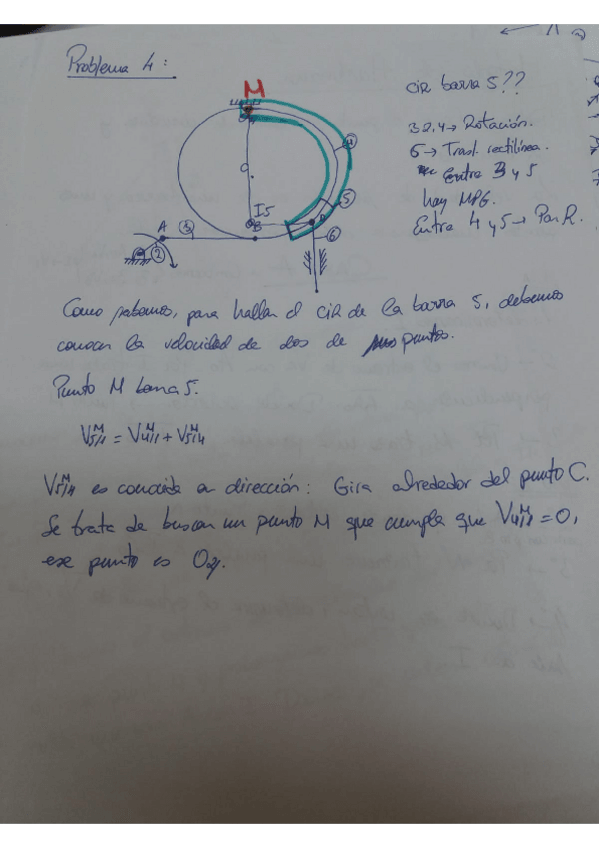 Problema 4:
M
CIR barra 5??
3 o 4 → Rotación.
6 → Trasl. rectilínea.
Entre 3 y 5
hay MPG.
Entre 4 y 5 → Par R.
4
C
5
I5
B
D
6
A
3
2
Como sabemos, para hallar el CIR de la barra 5, debemos
conocer la velocidad de dos de sus puntos.
Punto M barra 5.
V5/1 M = V4/1 M + V5/4 M
V5/4 M es conocida en dirección: Gira alrededor del punto C.
Se trata de buscar un punto M que cumpla que V4/1 M = 0,
ese punto es O4.